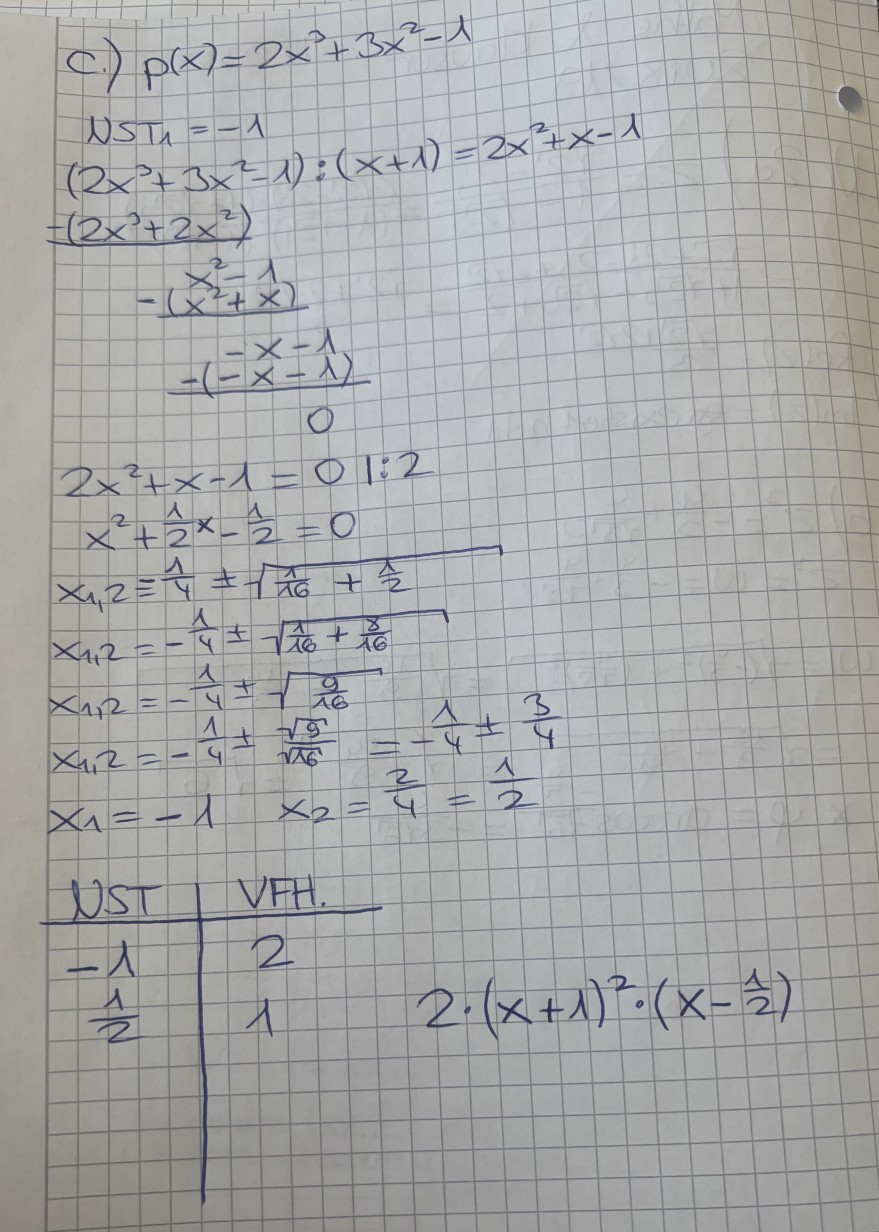 c.) p(x) = 2x³ + 3x² - 1
NST₁ = -1
(2x³ + 3x² - 1) : (x + 1) = 2x² + x - 1
-(2x³ + 2x²)
x² - 1
-(x² + x)
-x - 1
-(-x - 1)
0
2x² + x - 1 = 0 |:2
x² + 1/2 x - 1/2 = 0
x₁,₂ = 1/4 ± √(1/16 + 1/2)
x₁,₂ = -1/4 ± √(1/16 + 8/16)
x₁,₂ = -1/4 ± √(9/16)
x₁,₂ = -1/4 ± √9/√16 = -1/4 ± 3/4
x₁ = -1 x₂ = 2/4 = 1/2
NST VFH.
-1 2
1/2 1 2·(x+1)²·(x - 1/2)